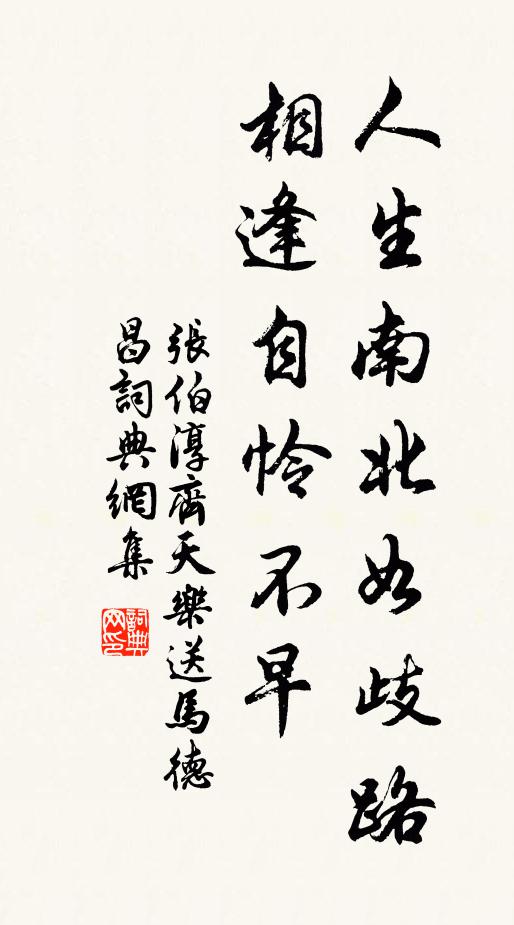 人生南北如歧路
相逢自怜不早
張伯淳齊天樂送馬德
昌詞典網集
詞典网印